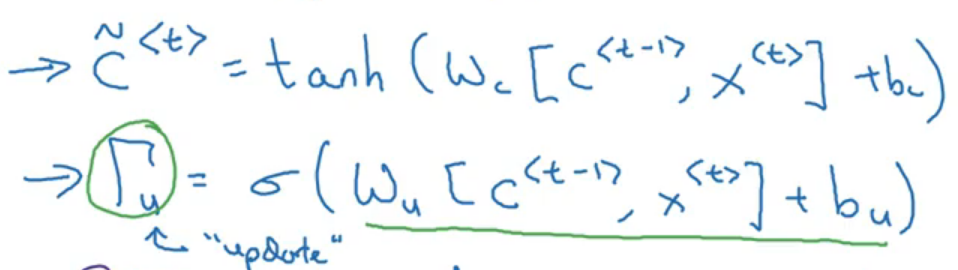 → c̃^<t> = tanh(W_c[c^<t-1>, x^<t>] + b_c)
→ Γ_u = σ(W_u[c^<t-1>, x^<t>] + b_u)
"update"